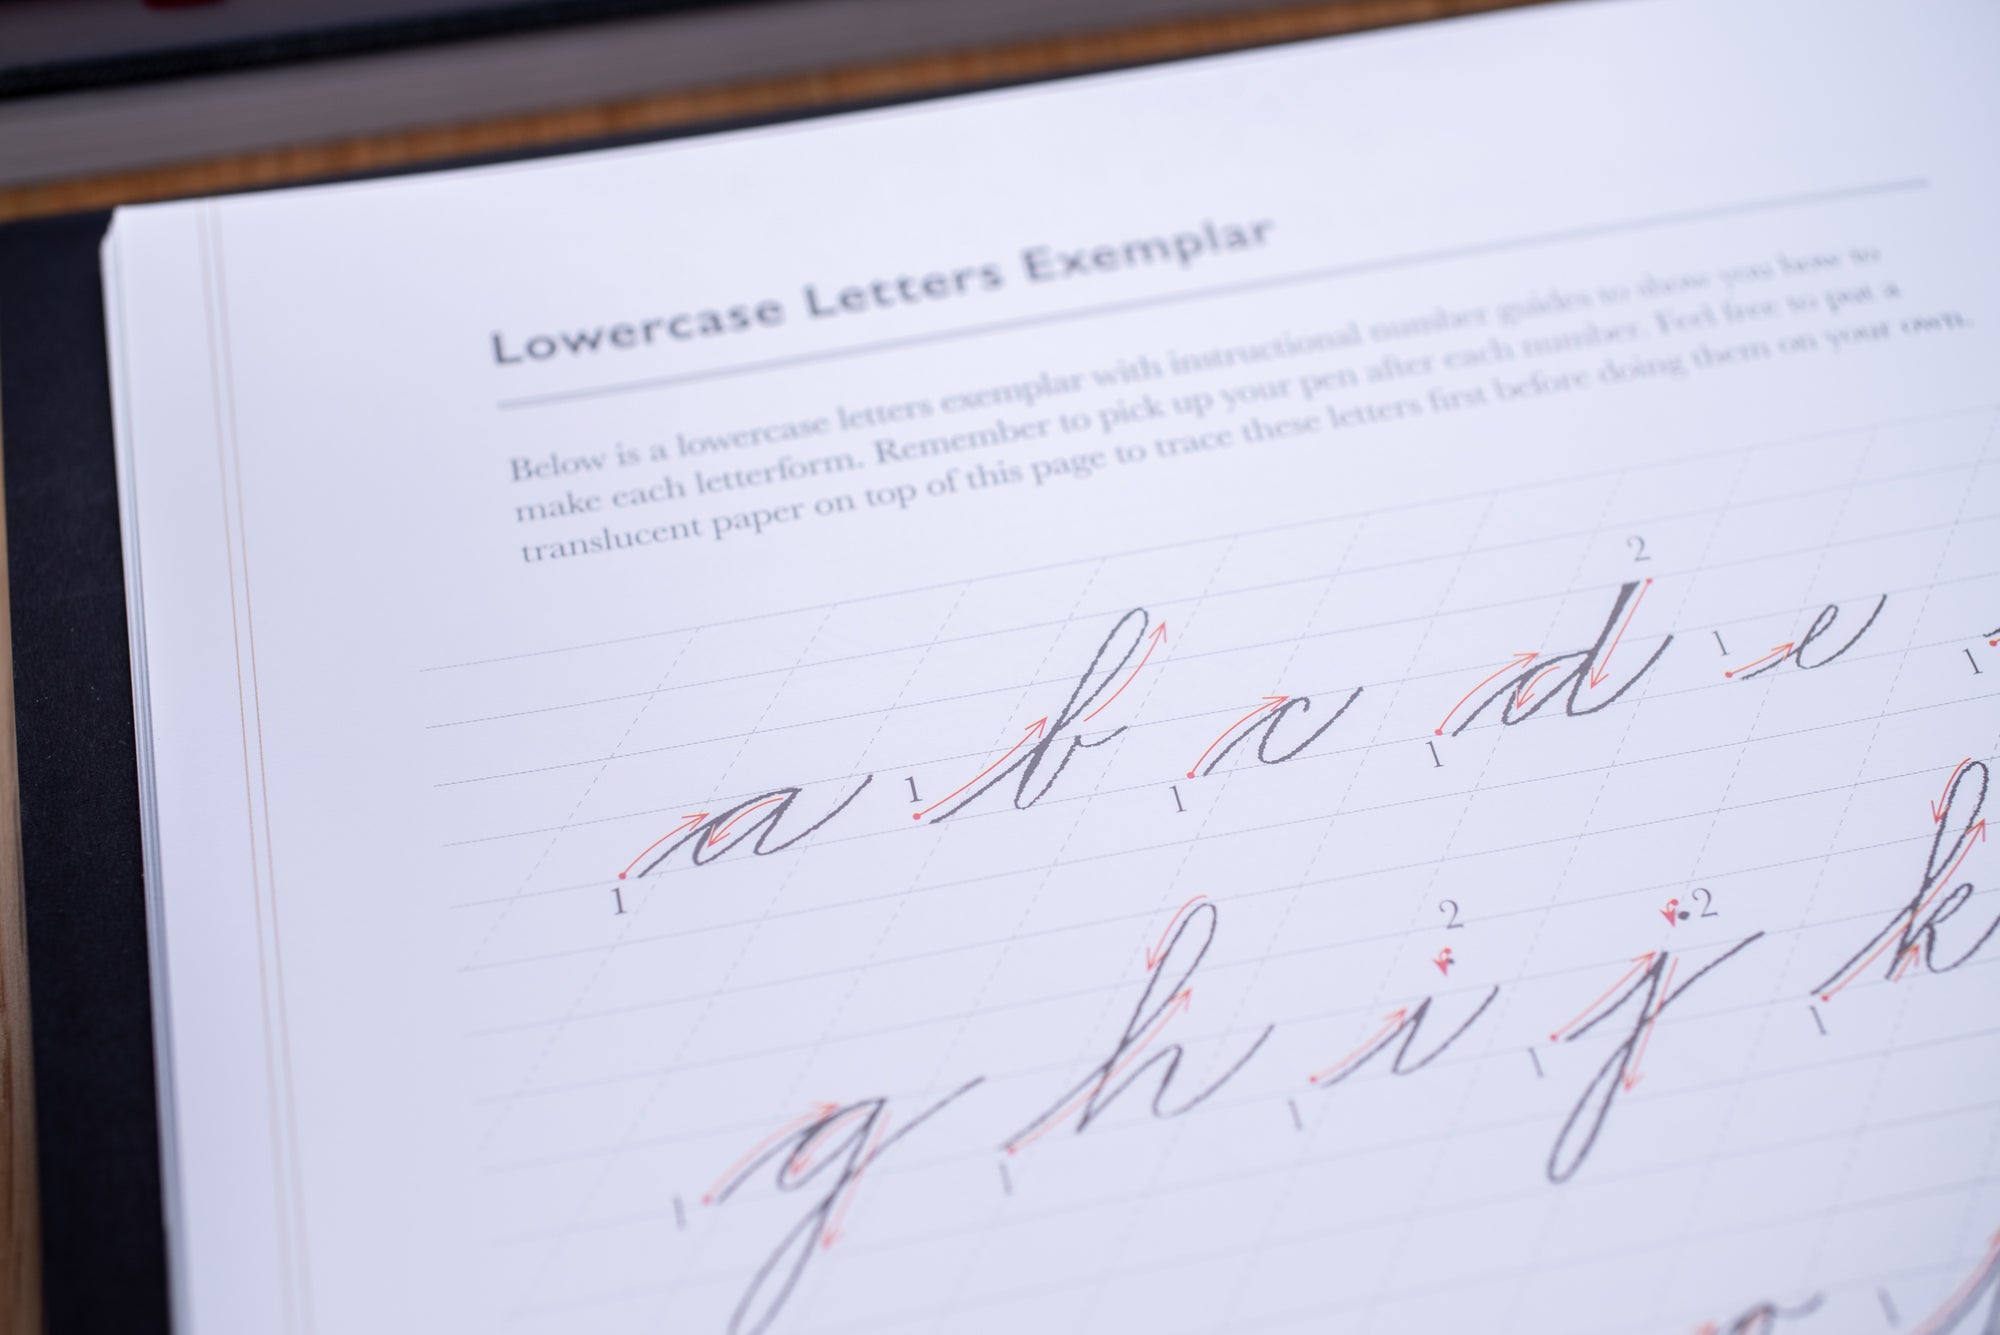 Lowercase Letters Exemplar
Below is a lowercase letters exemplar with instructional number guides to show you how to
make each letterform. Remember to pick up your pen after each number. Feel free to put a
translucent paper on top of this page to trace these letters first before doing them on your own.
1 a 1 b 1 c 1 d 2 1 e 1
1 g 1 h 1 i 2 1 j 2 1 k